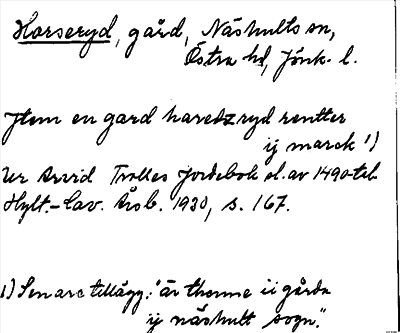 Horseryd, gård, Näshults sn,
Östra hd, Jönk. l.
Jtem en gard haredz ryd rentter
ij marck 1)
Ur Arvid Trolles Jordebok sl. av 1490-tal.
Hylt.-Cav. Årsb. 1930, s. 167.
1) Senare tillägg: "är thenne ii gårda
ij näshult sogn."